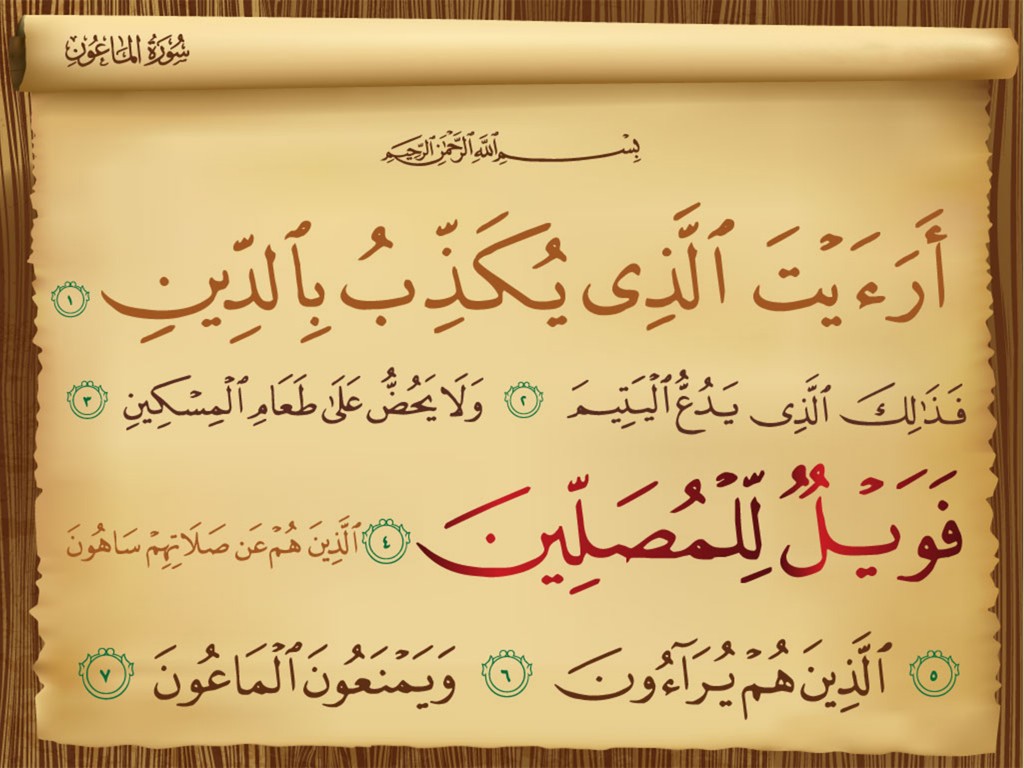 سُورَةُ الْمَاعُونِ
بِسْمِ اللَّهِ الرَّحْمَٰنِ الرَّحِيمِ
أَرَءَيْتَ ٱلَّذِى يُكَذِّبُ بِٱلدِّينِ ١
فَذَٰلِكَ ٱلَّذِى يَدُعُّ ٱلْيَتِيمَ ٢ وَلَا يَحُضُّ عَلَىٰ طَعَامِ ٱلْمِسْكِينِ ٣
فَوَيْلٌ لِّلْمُصَلِّينَ ٤ ٱلَّذِينَ هُمْ عَن صَلَاتِهِمْ سَاهُونَ
٥ ٱلَّذِينَ هُمْ يُرَآءُونَ ٦ وَيَمْنَعُونَ ٱلْمَاعُونَ ٧